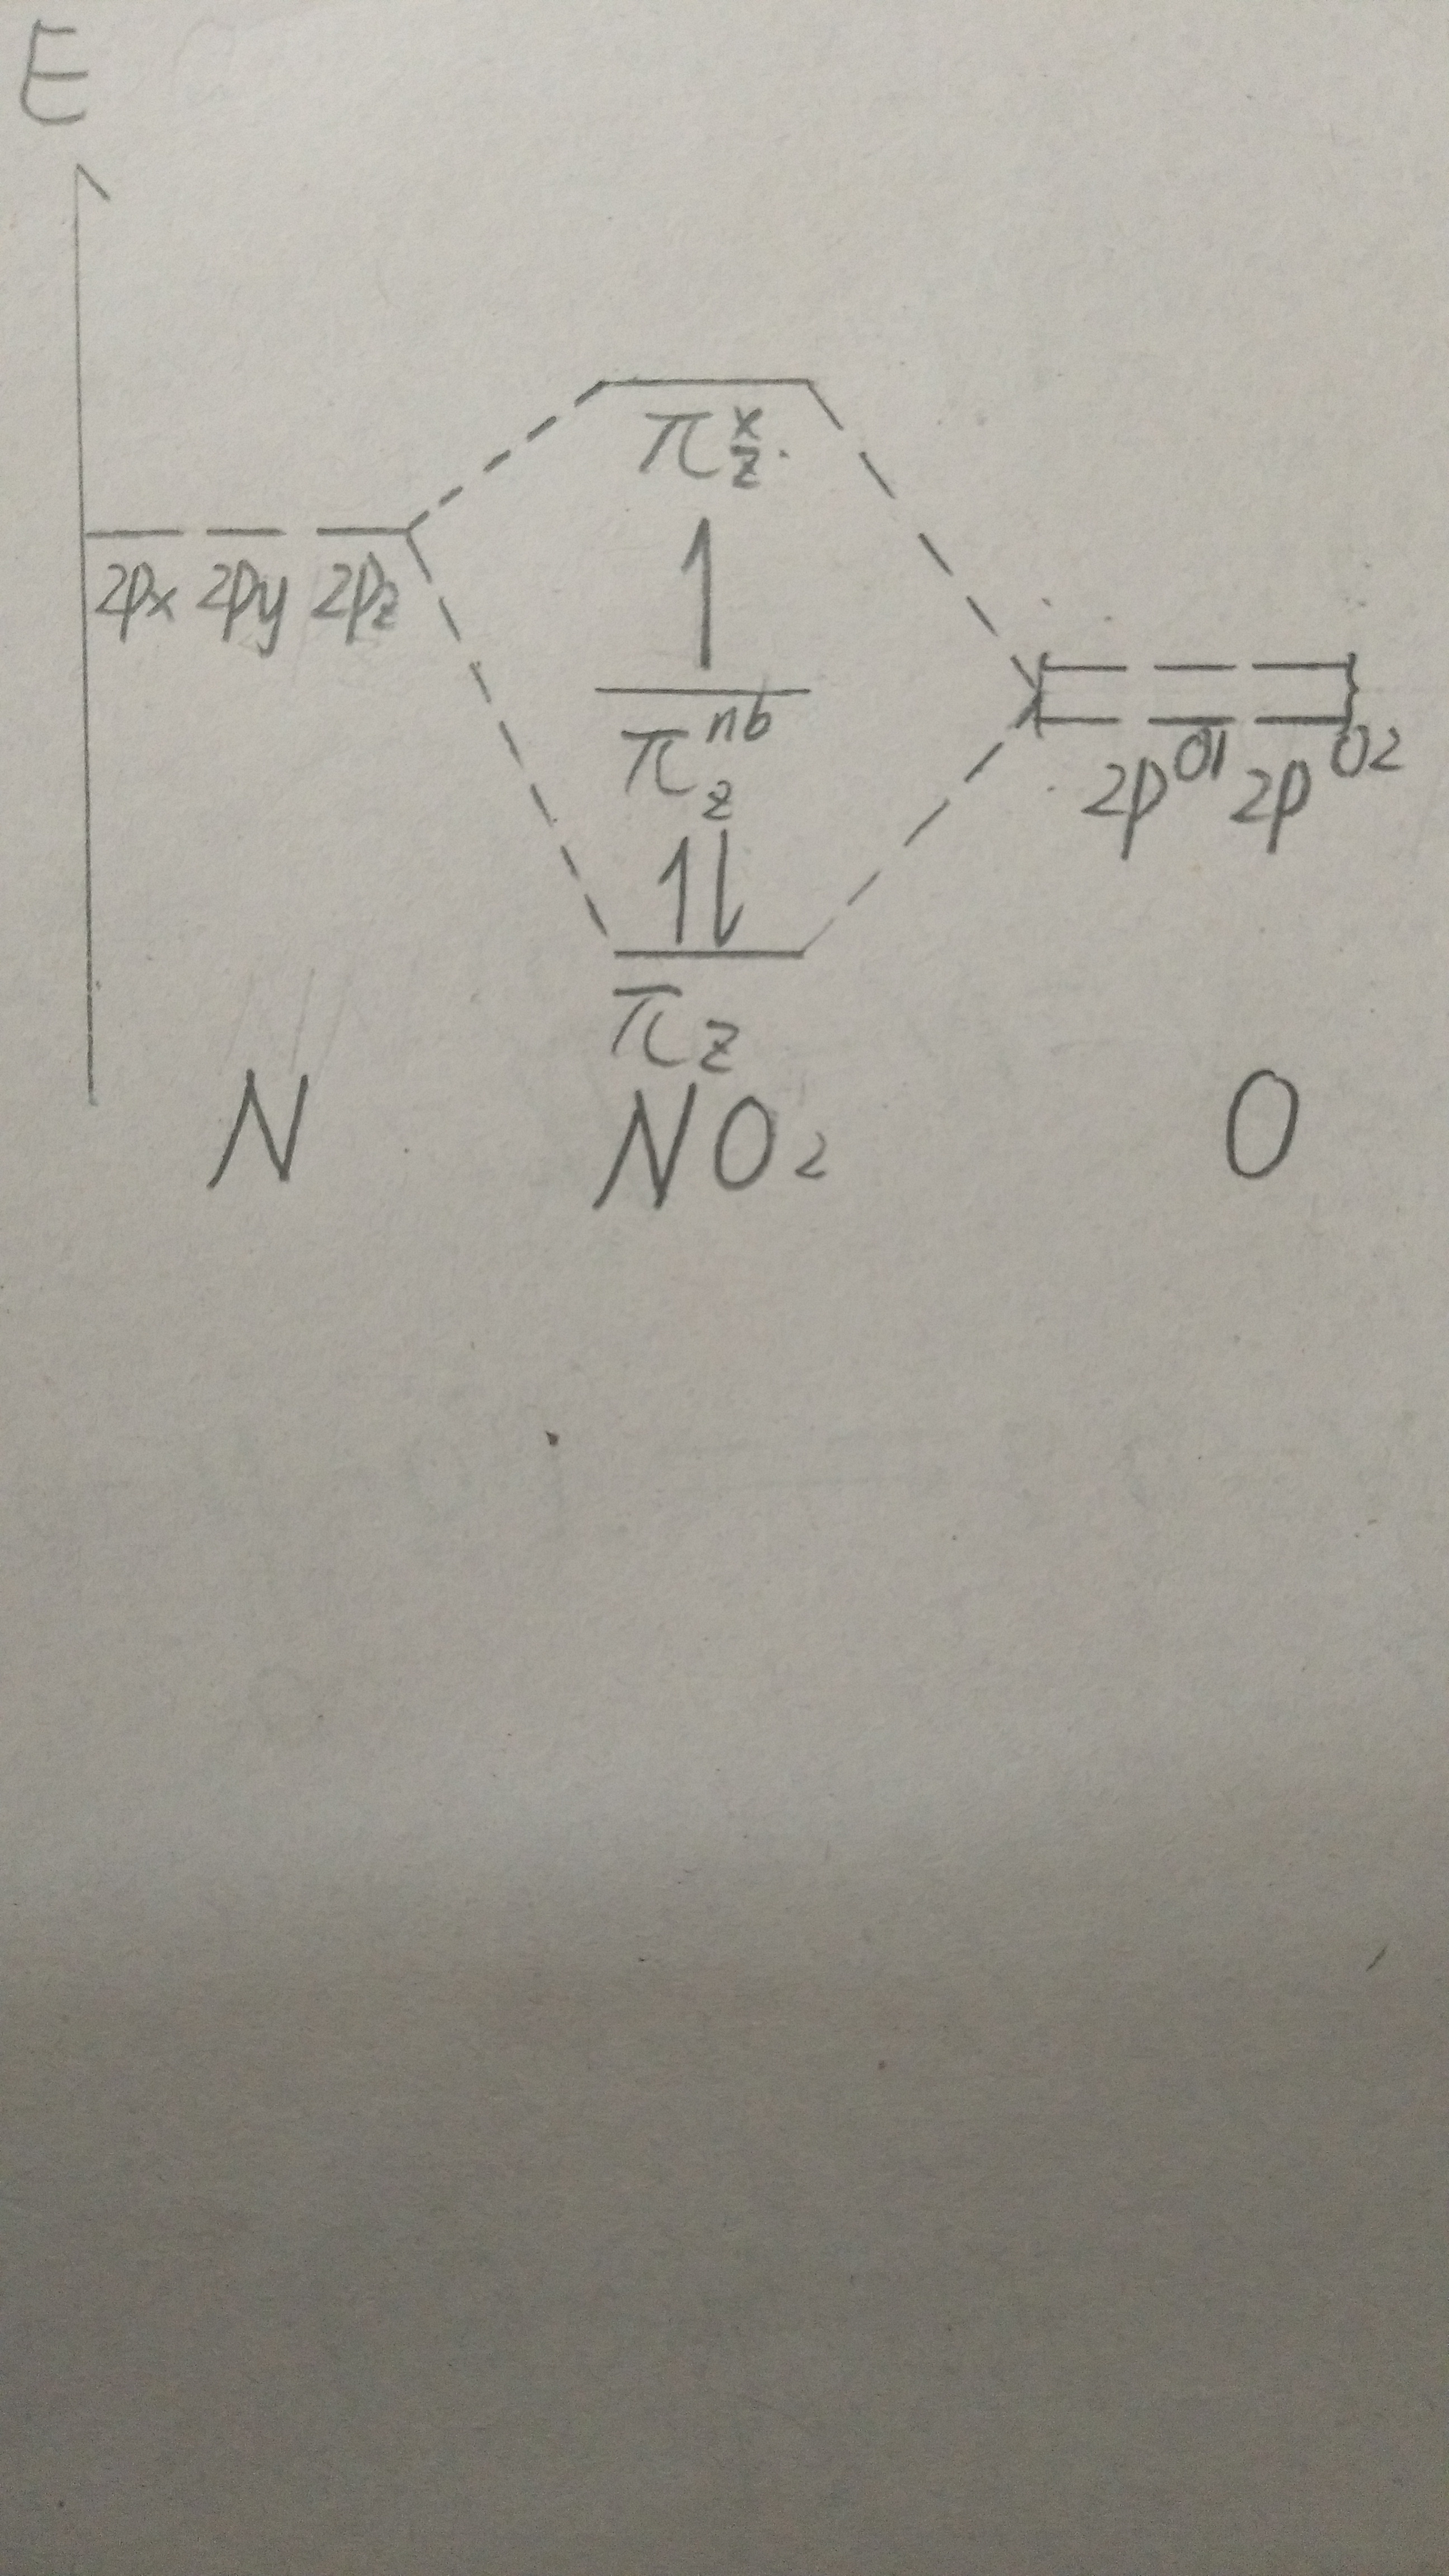 E
π*z
2px 2py 2pz
↑
π z nb
2p O1 2p O2
↑↓
πz
N NO2 O